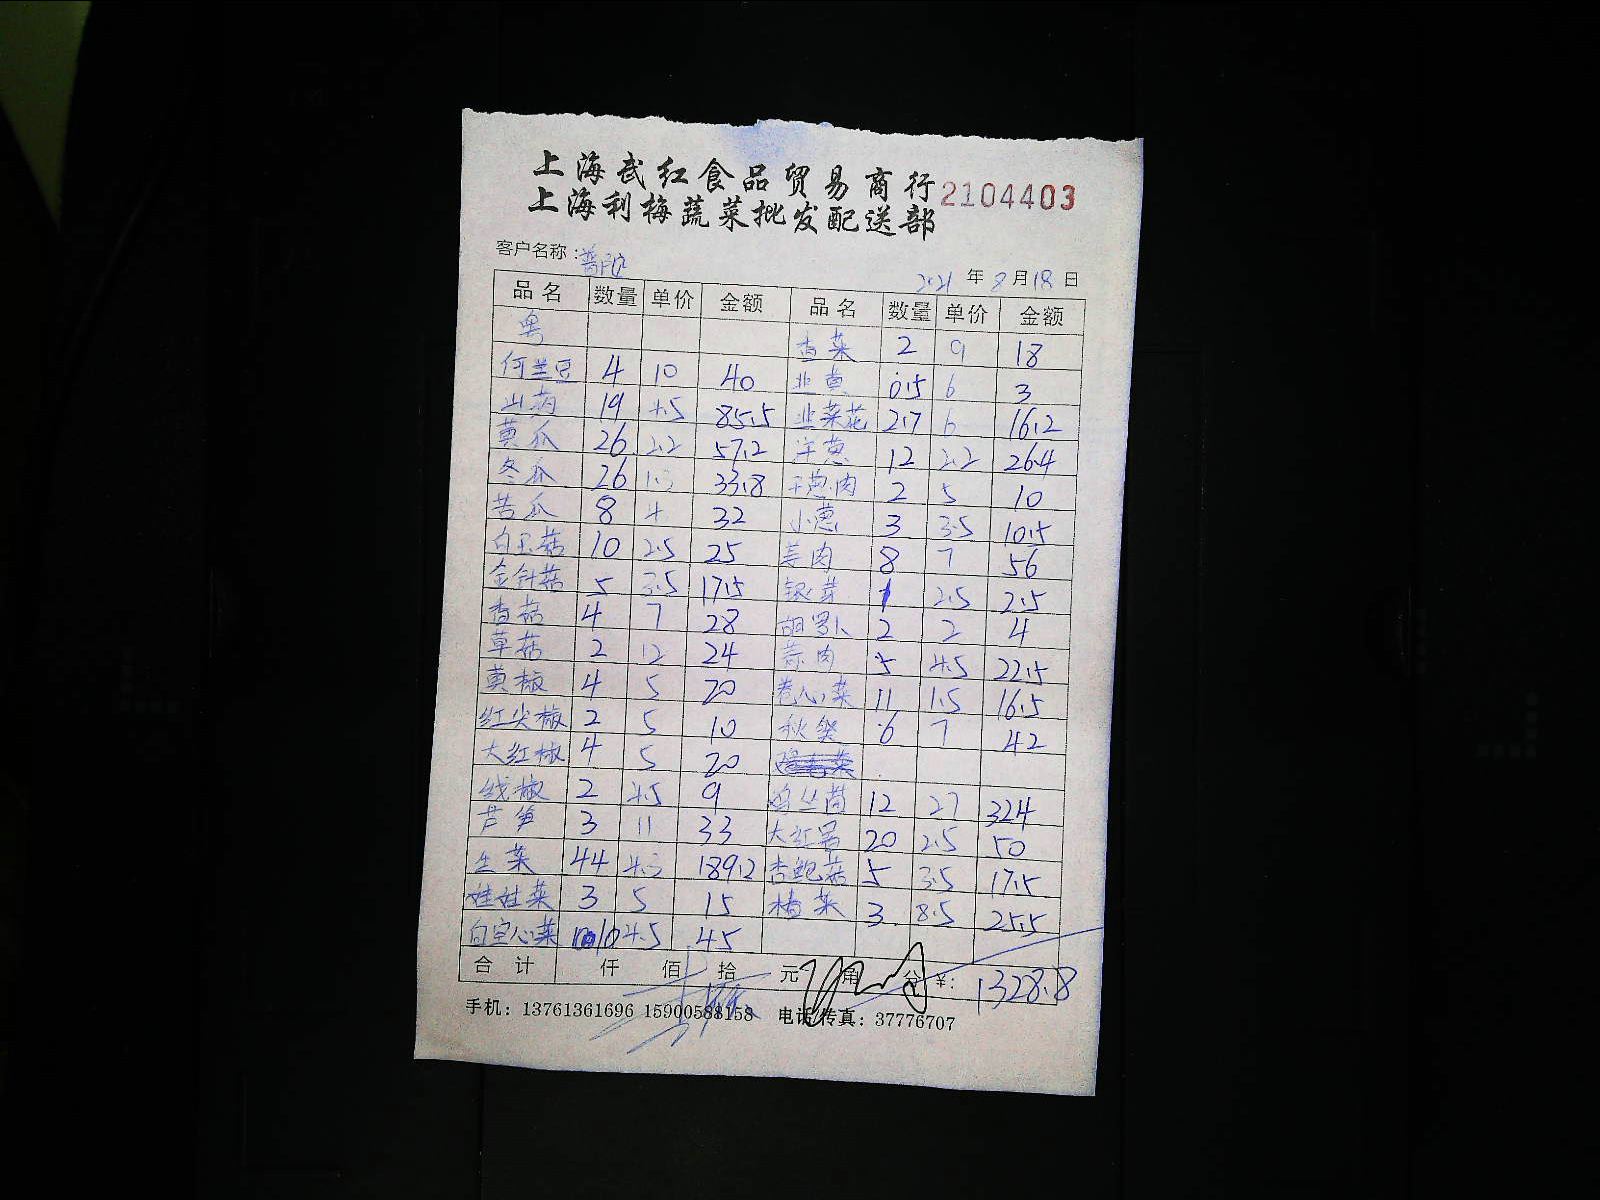 上海武红食品贸易商行
上海利梅蔬菜批发配送部
2104403
客户名称：普陀
2021年8月18日
品名 数量 单价 金额 品名 数量 单价 金额
粤 香菜 2 9 18
何兰豆 4 10 40 韭黄 0.5 6 3
山药 19 4.5 85.5 韭菜花 2.7 6 16.2
黄瓜 26 2.2 57.2 洋葱 12 2.2 26.4
冬瓜 26 1.3 33.8 干葱肉 2 5 10
苦瓜 8 4 32 小葱 3 3.5 10.5
白玉菇 10 2.5 25 姜肉 8 7 56
金针菇 5 3.5 17.5 银芽 1 2.5 2.5
香菇 4 7 28 胡罗卜 2 2 4
草菇 2 12 24 蒜肉 5 4.5 22.5
黄椒 4 5 20 卷心菜 11 1.5 16.5
红尖椒 2 5 10 秋葵 6 7 42
大红椒 4 5 20
线椒 2 4.5 9 鸡丛菌 12 27 324
芦笋 3 11 33 大红署 20 2.5 50
生菜 44 4.3 189.2 杏鲍菇 5 3.5 17.5
娃娃菜 3 5 15 橘菜 3 8.5 25.5
白空心菜 10 4.5 45
合计 仟 佰 拾 元 角 分 ¥: 1328.8
手机：13761361696 15900588158 电话/传真：37776707